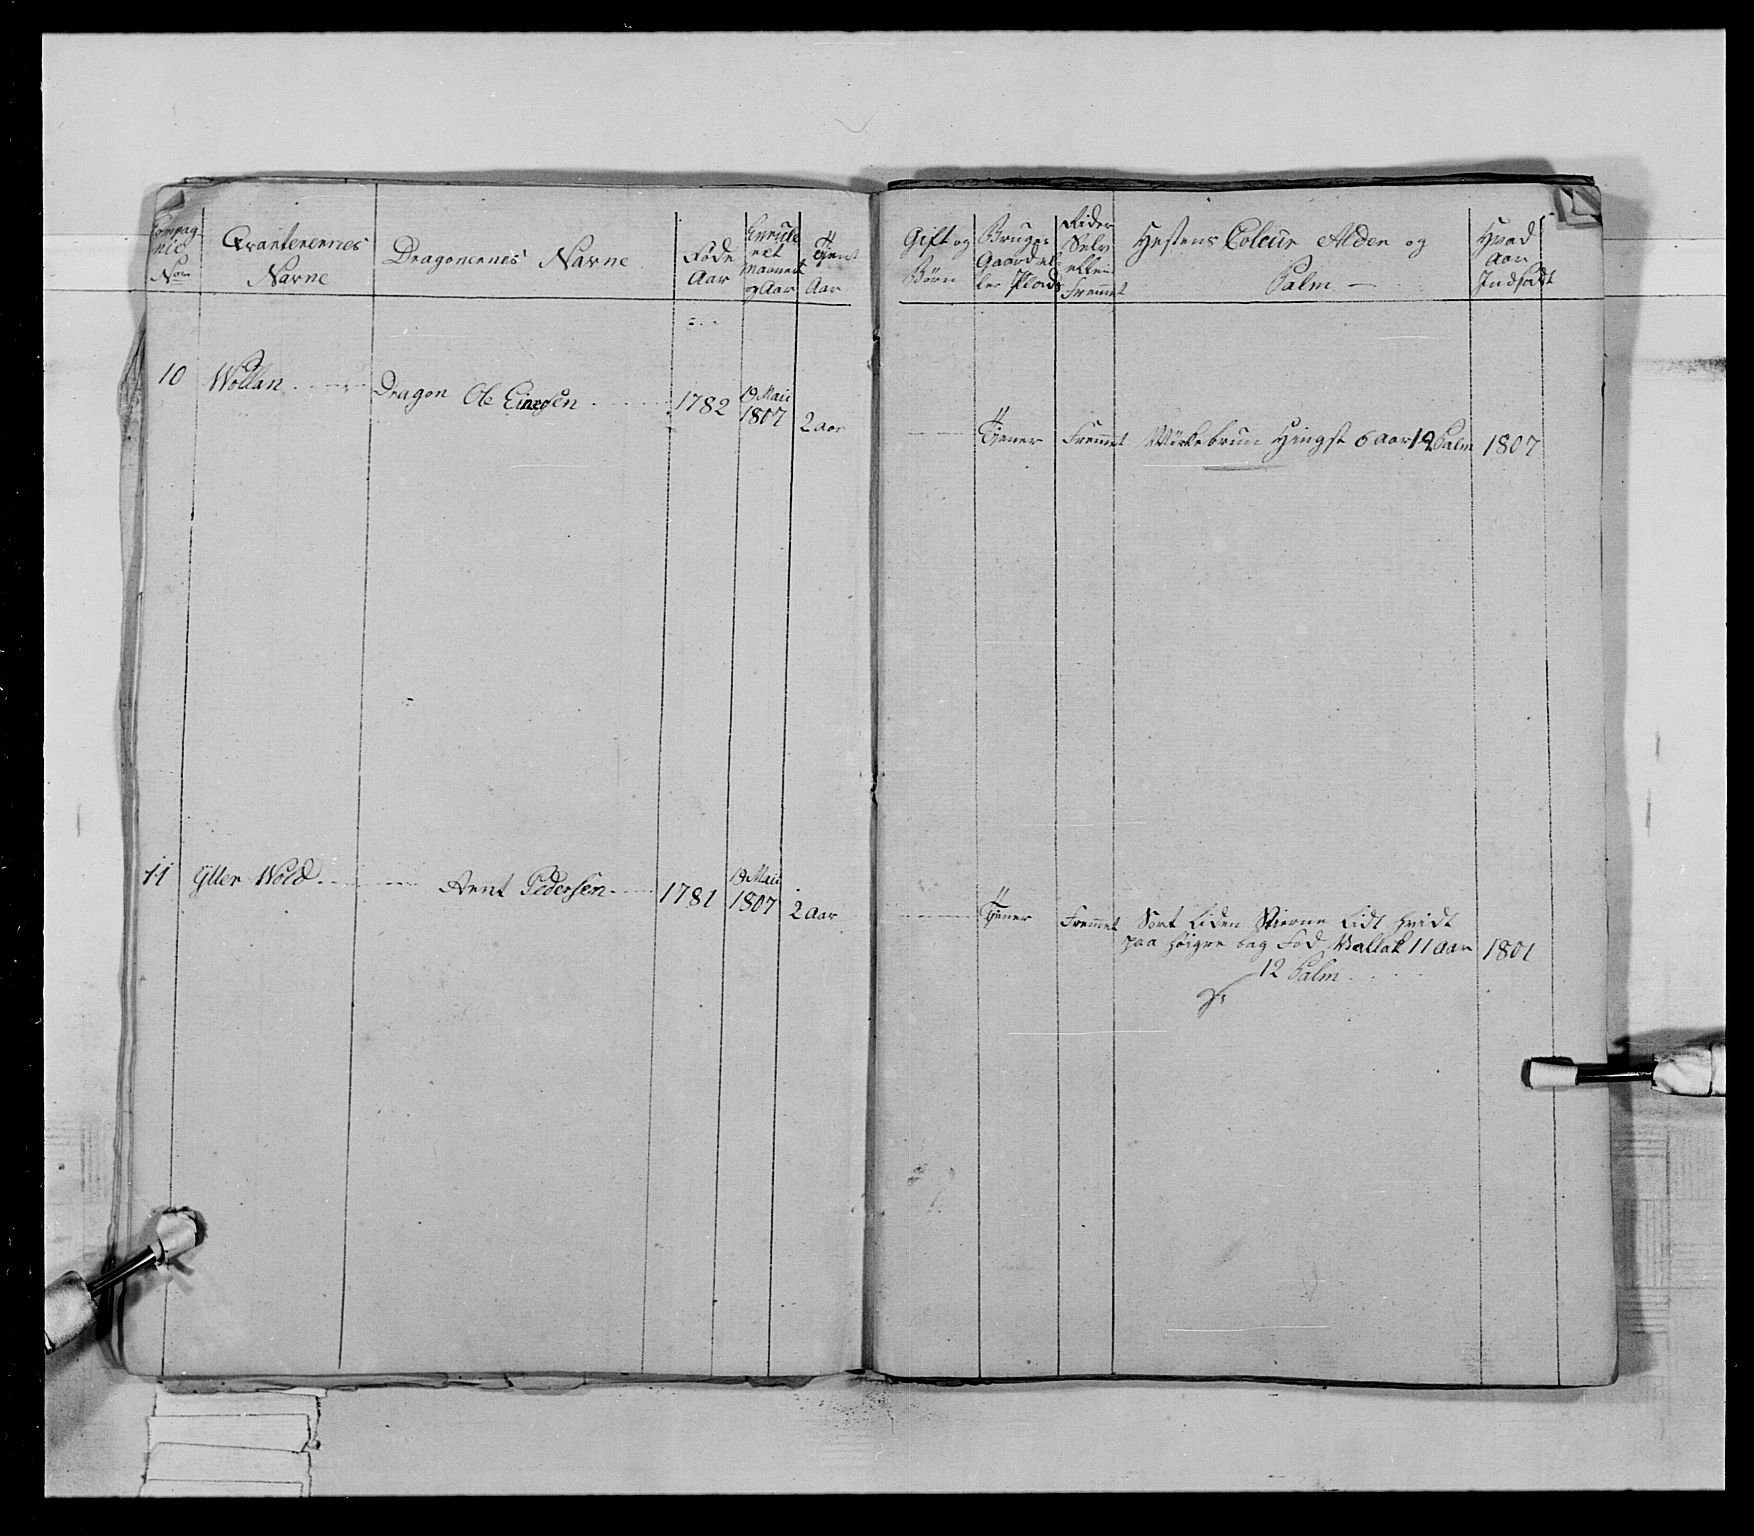 Compag
nie
No
Qvarterernes
Navne
Dragonernes Navne
Føde
Aar
Enrule
ret
Maanet
og Aar
Tjent
Aar
Gift og
Børn
Bruger
Gaard el
ler Plads
Rider
Selv
eller
Fremet
Hestens Coleur Alder og
Palm
Hvad
Aar
Indsadt
10 Wollan Dragon Ole Einersen 1782 19 Maii 1807 2 Aar
Tjener Fremet Mörkebrun Hingst 6 Aar 12 Palm 1807
11 Ytter Wold Arnt Pedersen 1781 19 Maii 1807 2 Aar
Tjener Fremet Sort liden Stierne lidt hvidt
paa høigre bag Fod Vallak 11 Aar 1801
12 Palm